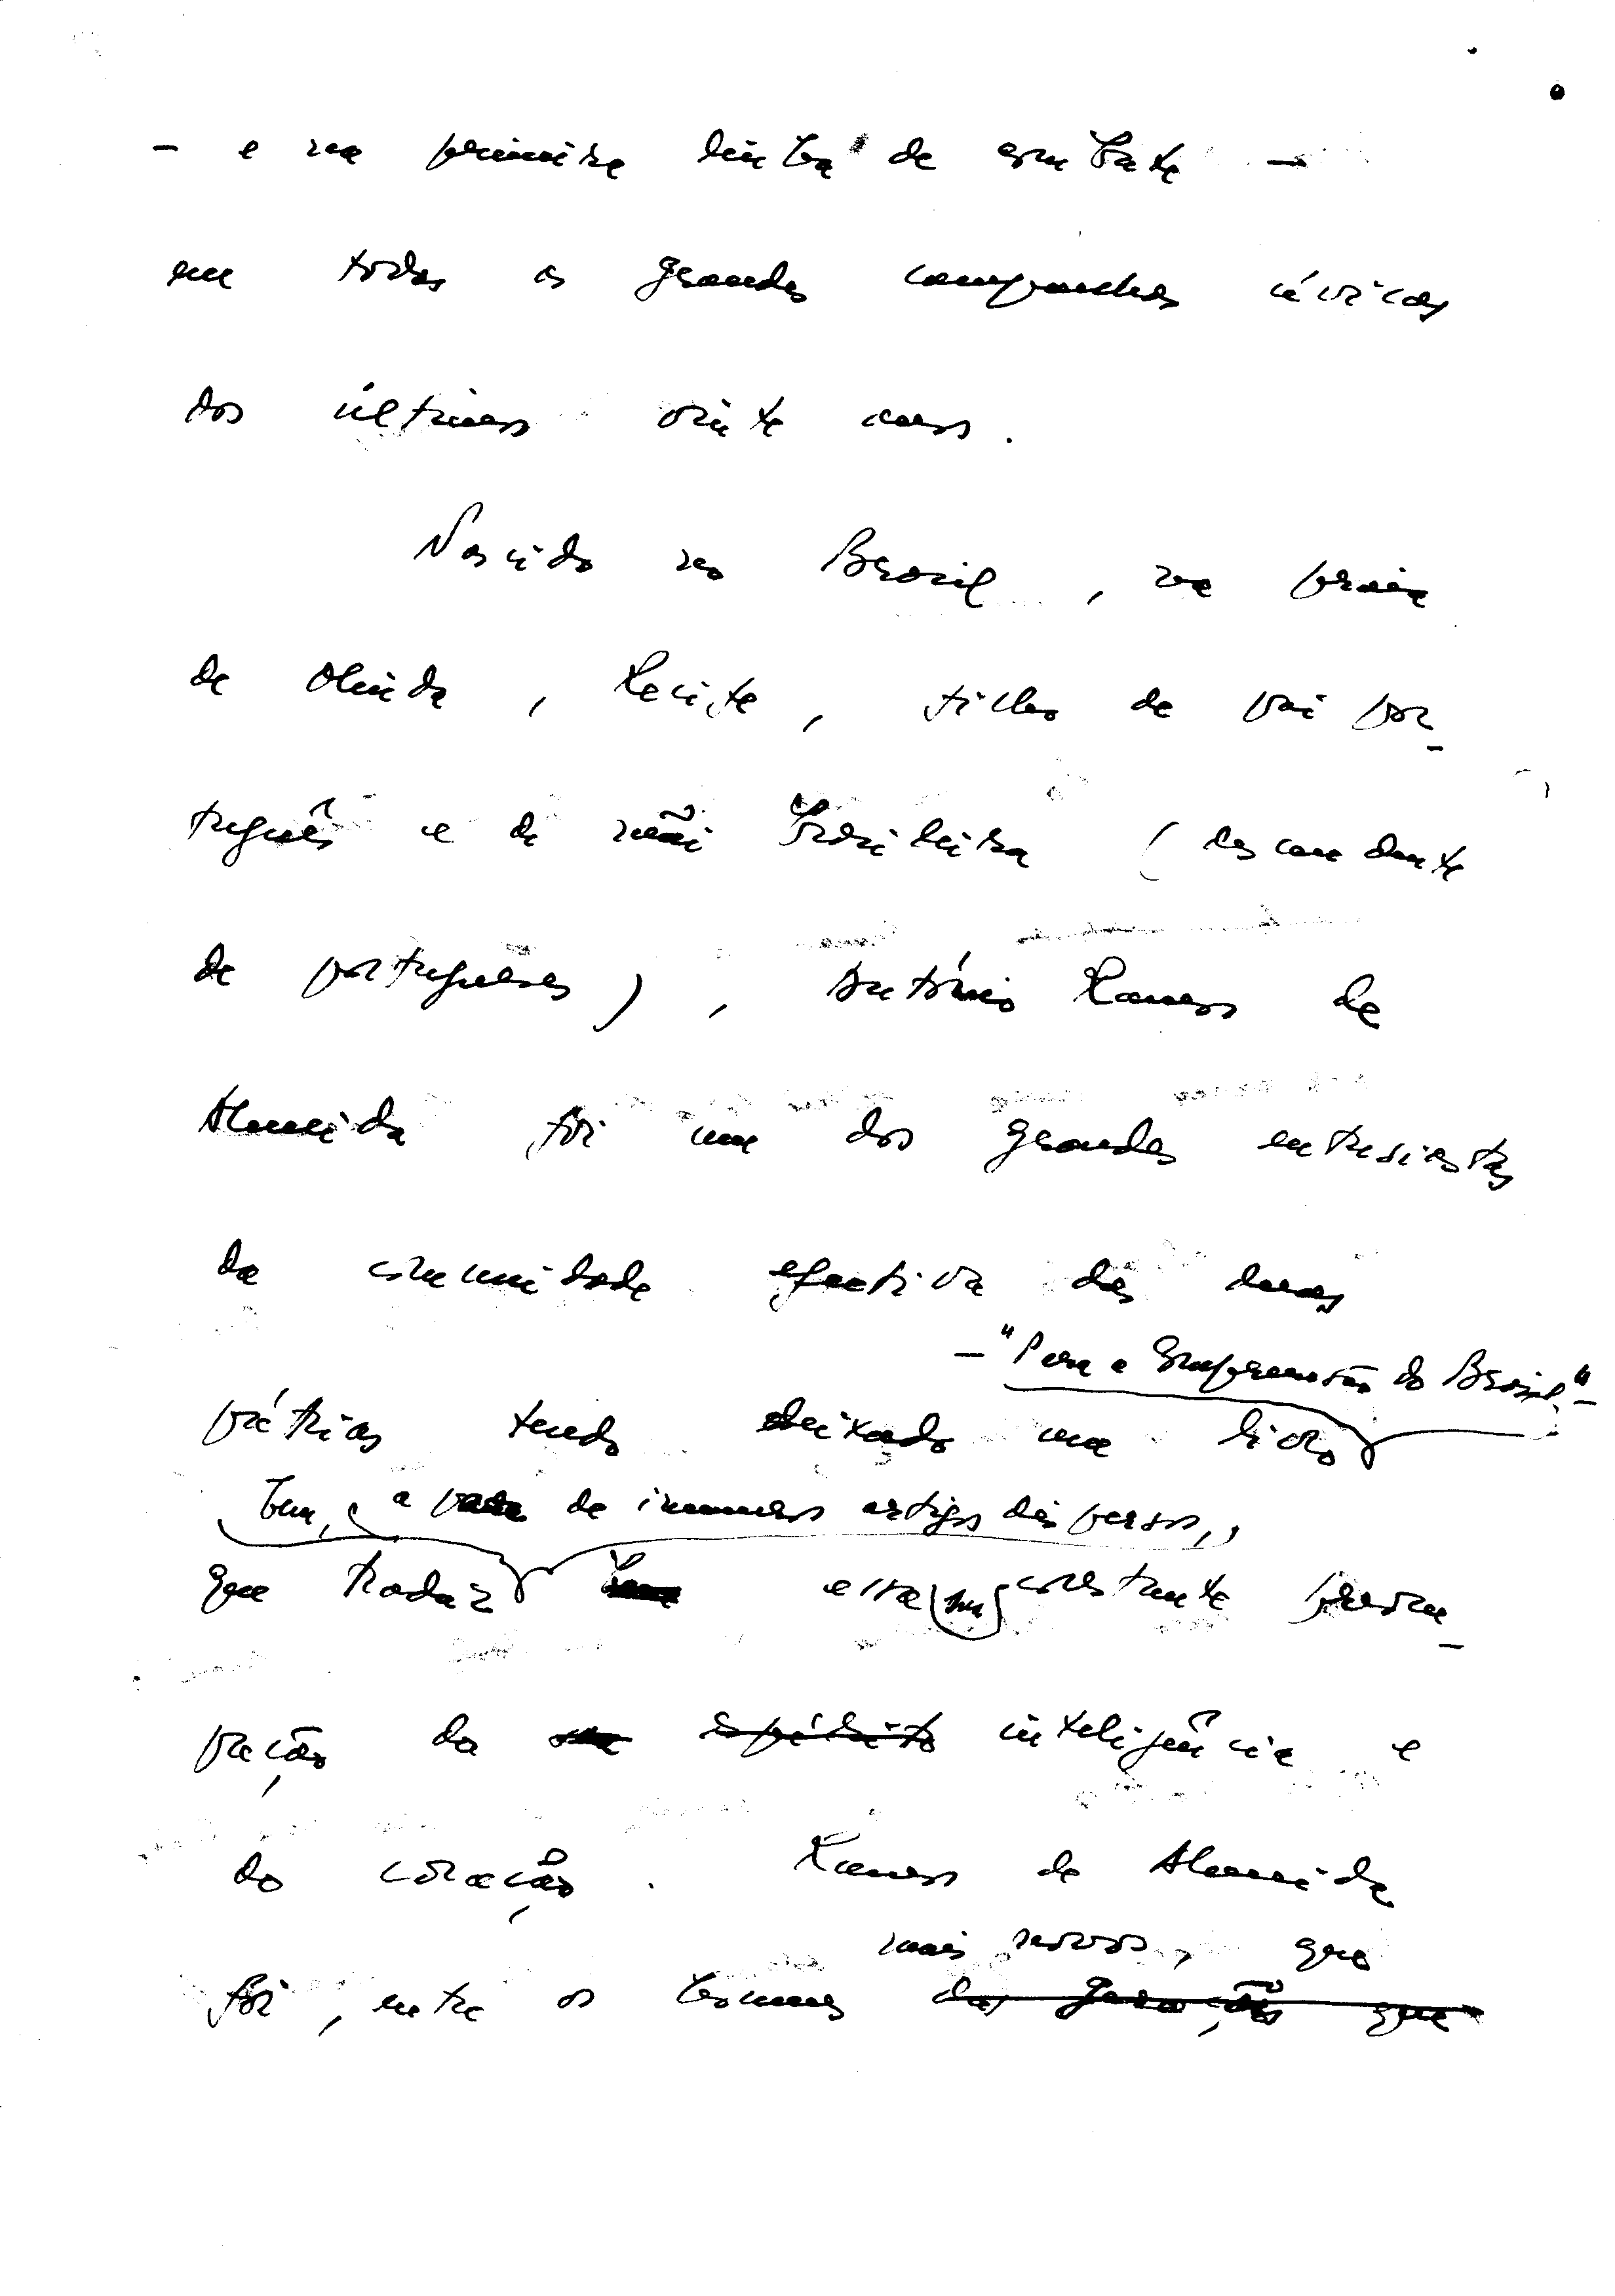 — e na primeira linha de combate —
em todas as grandes campanhas cívicas
dos últimos vinte anos.
Nascido no Brasil, na praia
de Olinda, Recife, filho de pai por-
tuguês e de mãi brasileira (descendente
de portugueses), António Ramos de
Almeida foi um dos grandes entusiastas
da comunidade efectiva das duas
— "Para a Compreensão do Brasil" —
pátrias tendo deixado um livro
bem, a par de inúmeros artigos dispersos,
que traduz essa sua constante preocu-
pação da inteligência e
do coração. Ramos de Almeida
mais novos, que
foi, entre os homens das gerações que